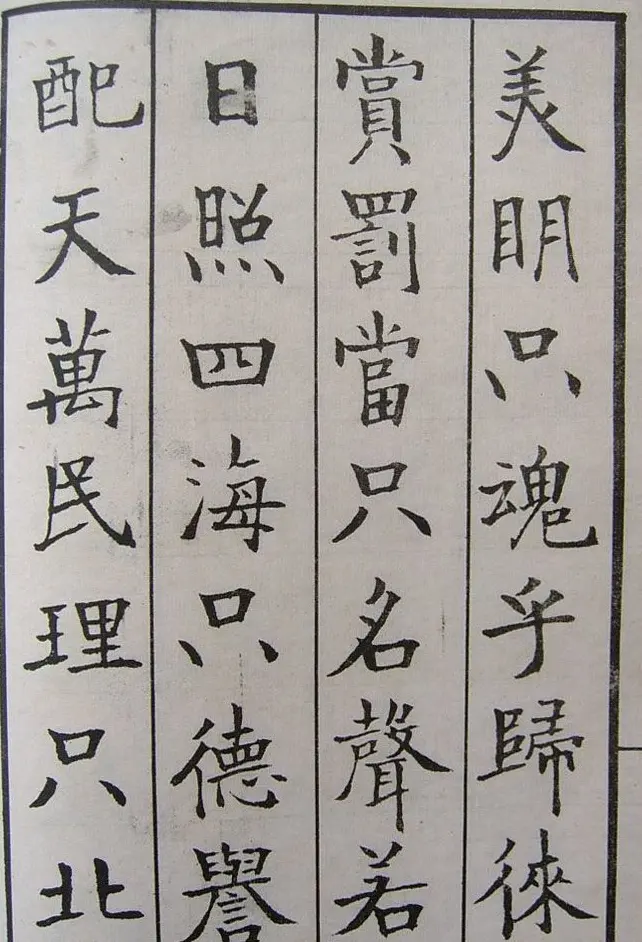 美明只魂乎歸徠
賞罰當只名聲若
日照四海只德譽
配天萬民理只北